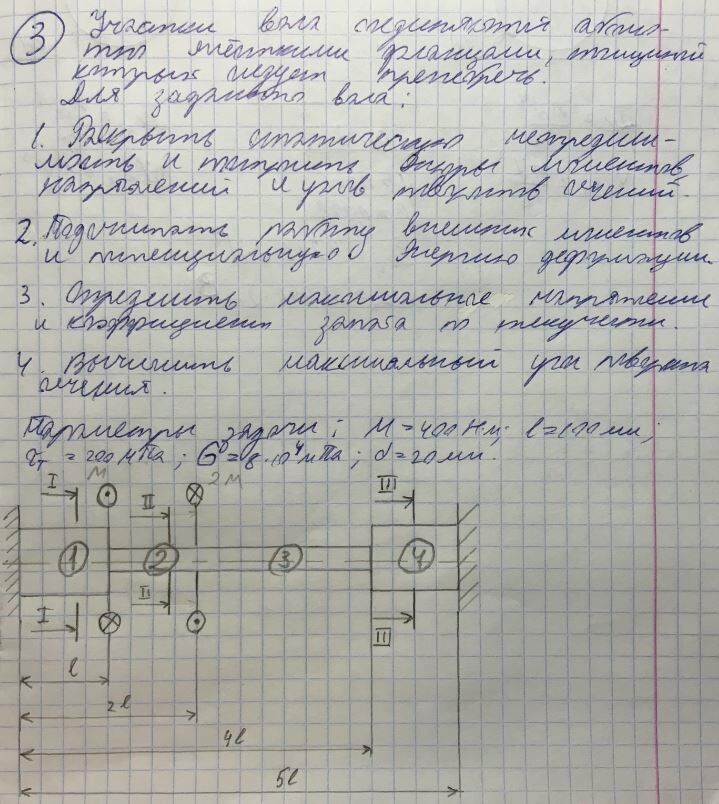 3 Участки вала соединяются абсолю-
тно жёсткими фланцами, толщиной
которых следует пренебречь.
Для заданного вала:
1. Раскрыть статическую неопредели-
мость и построить эпюры моментов,
напряжений и углов поворотов сечений.
2. Подсчитать работу внешних моментов
и потенциальную энергию деформации.
3. Определить максимальные напряжения
и коэффициент запаса по текучести.
4. Вычислить максимальный угол поворота
сечения.
Параметры задачи: M = 400 Н·м; l = 100 мм;
τт = 200 МПа; G = 8·10⁴ МПа; d = 20 мм.
M
2M
I
II
III
1
2
3
4
I
II
III
l
2l
4l
5l